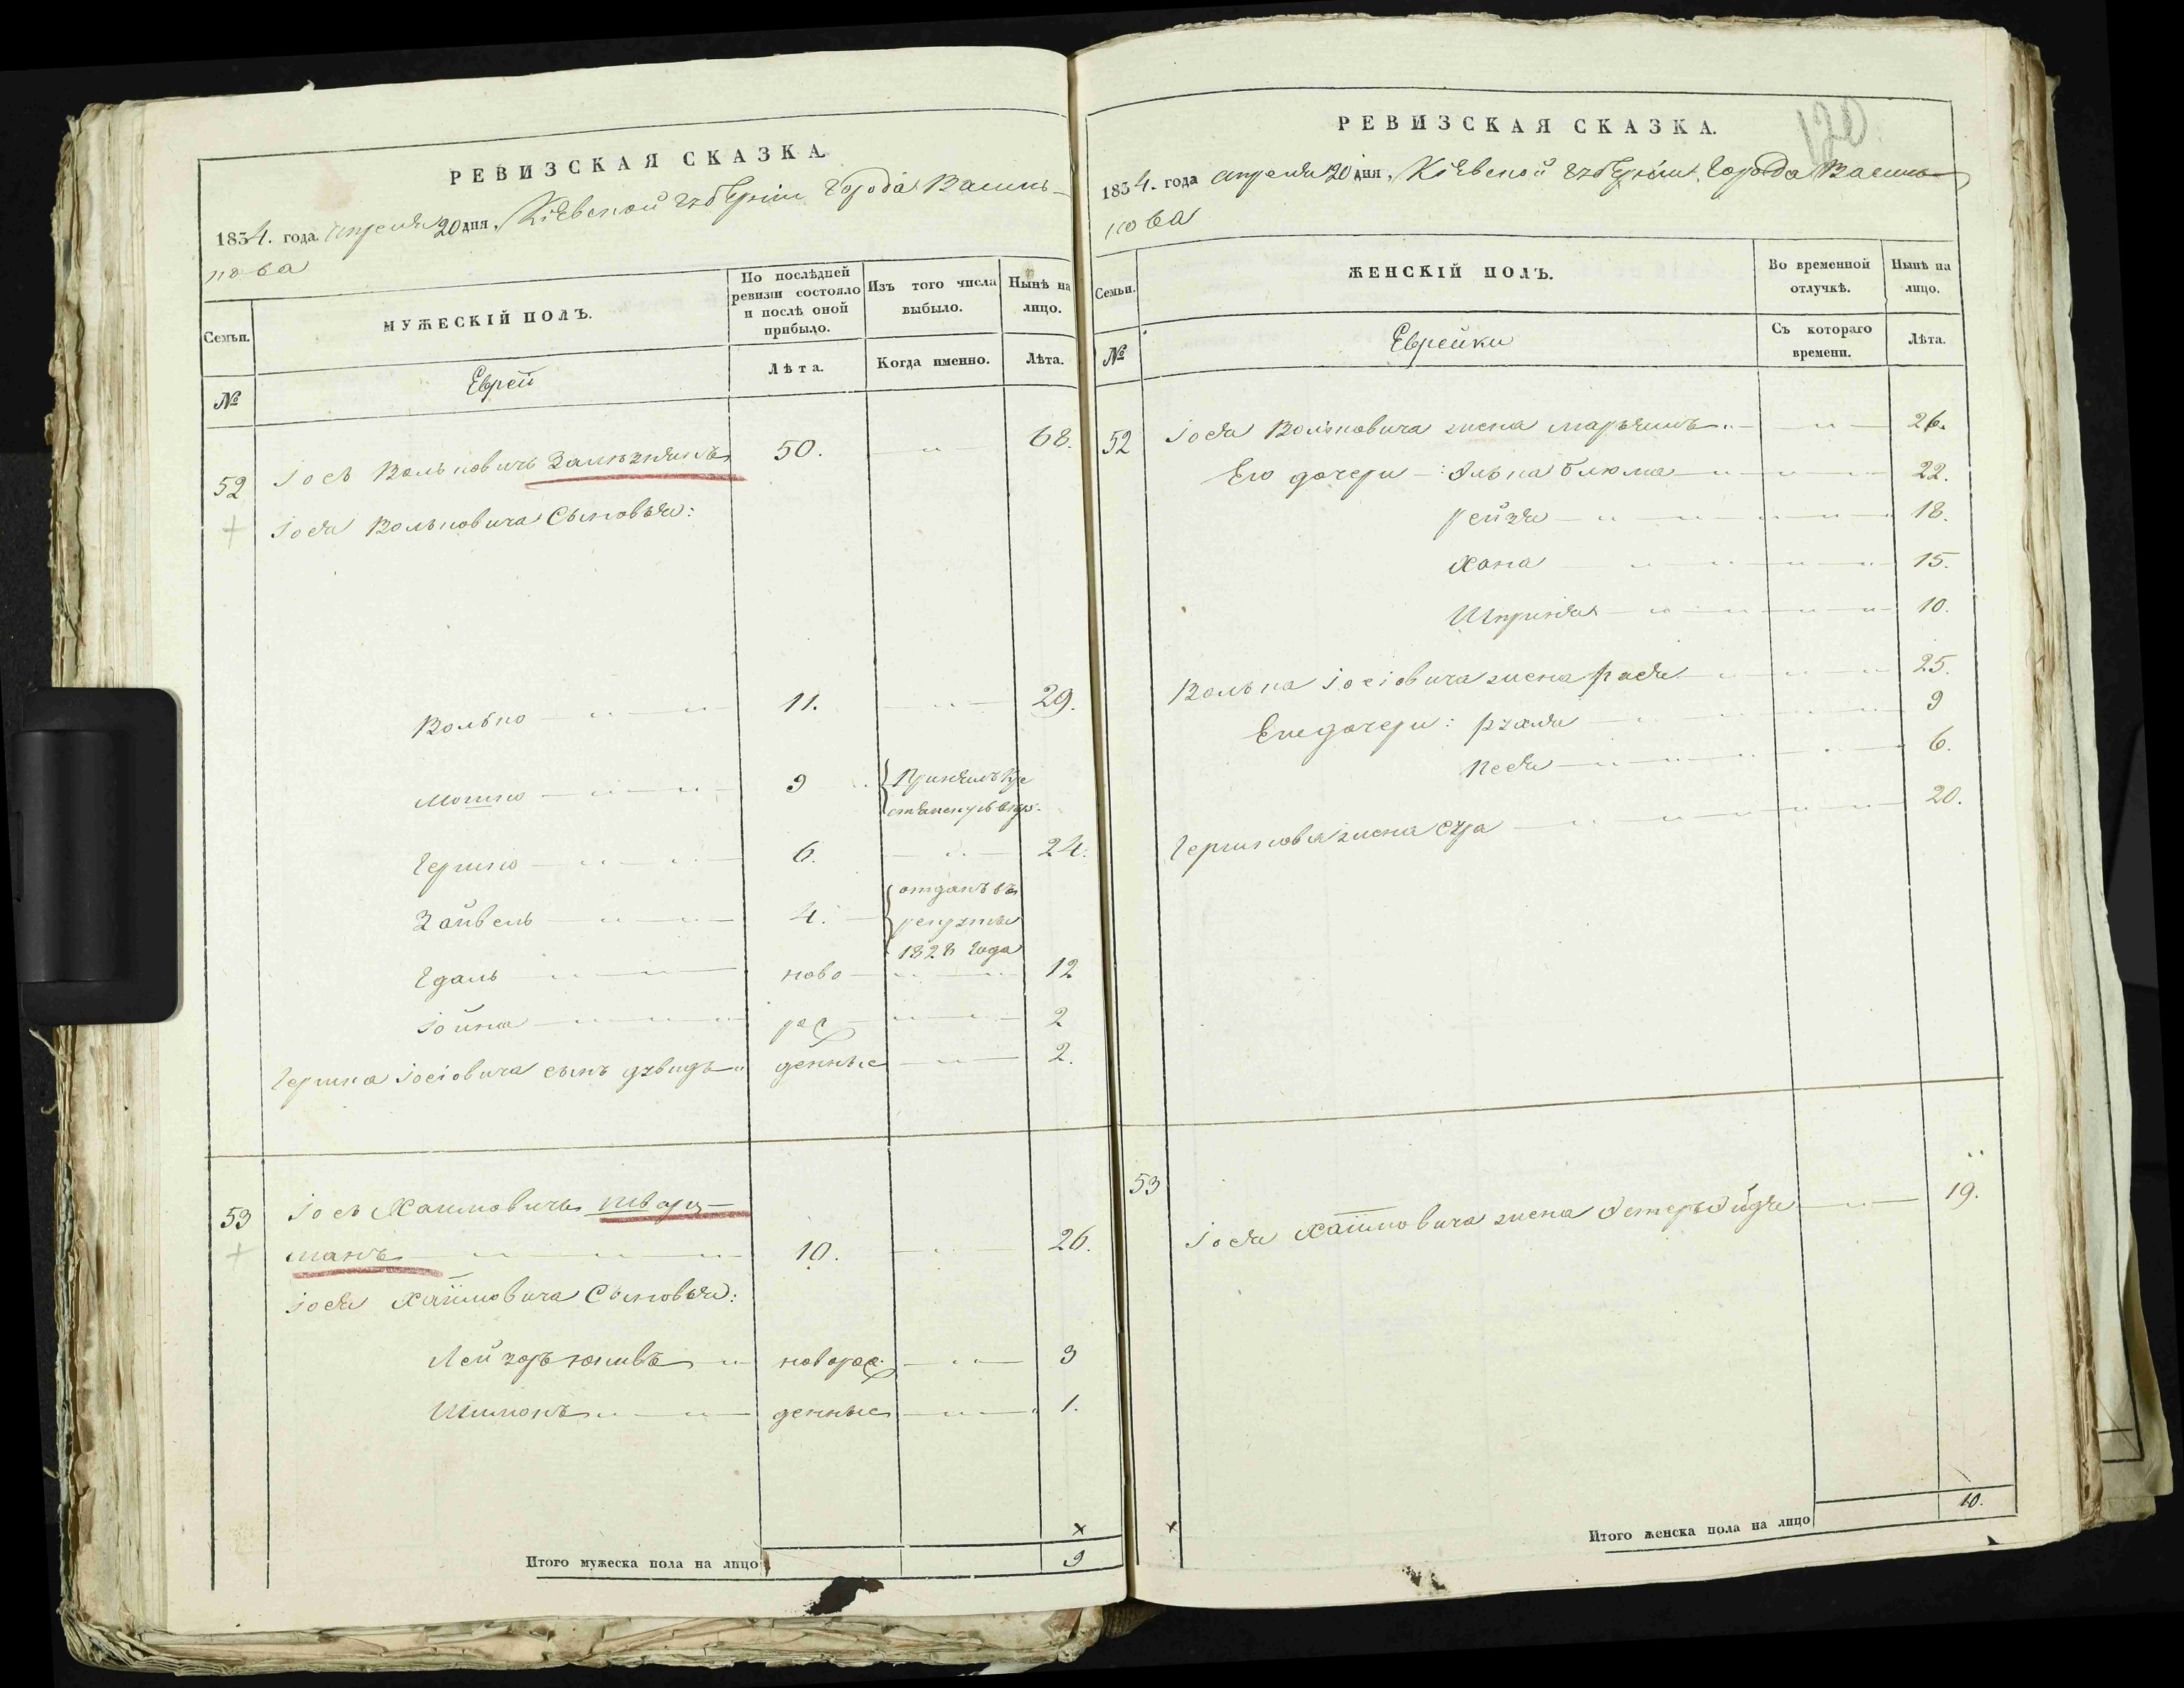 РЕВИЗСКАЯ СКАЗКА.
1834. года апреля 20 дня, Кіевской губерніи города Василь-
кова
Семьи.
МУЖЕСКІЙ ПОЛЪ.
По послѣдней ревизіи состояло и послѣ оной прибыло.
Изъ того числа выбыло.
Нынѣ на лицо.
№
Еврей
Лѣта.
Когда именно.
Лѣта.
52 Іось Вольковичъ 50. 68.
Іося Вольковича Сыновья:
Волько 11. 29.
Мошко 9 Принялъ
Гершко 6. 24.
Зайвель 4. отданъ въ
рекруты
1828 года
Едаль ново 12
Іойна рож 2
Гершка Іосіовича сынъ денные 2.
53 Іось Хаимовичъ Шварц-
манъ 10. 26.
Іося Хаимовича Сыновья:
Лейзоръ новорож 3
Шимонъ денные 1.
Итого мужеска пола на лицо 9
120
РЕВИЗСКАЯ СКАЗКА.
1834. года апреля 20 дня, Кіевской губерніи, города Василь-
кова
Семьи.
ЖЕНСКІЙ ПОЛЪ.
Во временной отлучкѣ.
Нынѣ на лицо.
№
Еврейки
Съ котораго времени.
Лѣта.
52 Іося Вольковича жена 26.
Его дочери: Элька Блюма 22.
Рейзя 18.
Хана 15.
Шпринця 10.
Волька Іосіовича жена Рася 25.
Его дочери: Рухля 9
Песя 6.
Гершкова жена Сура 20.
53
Іося Хаимовича жена 19.
Итого женска пола на лицо 10.